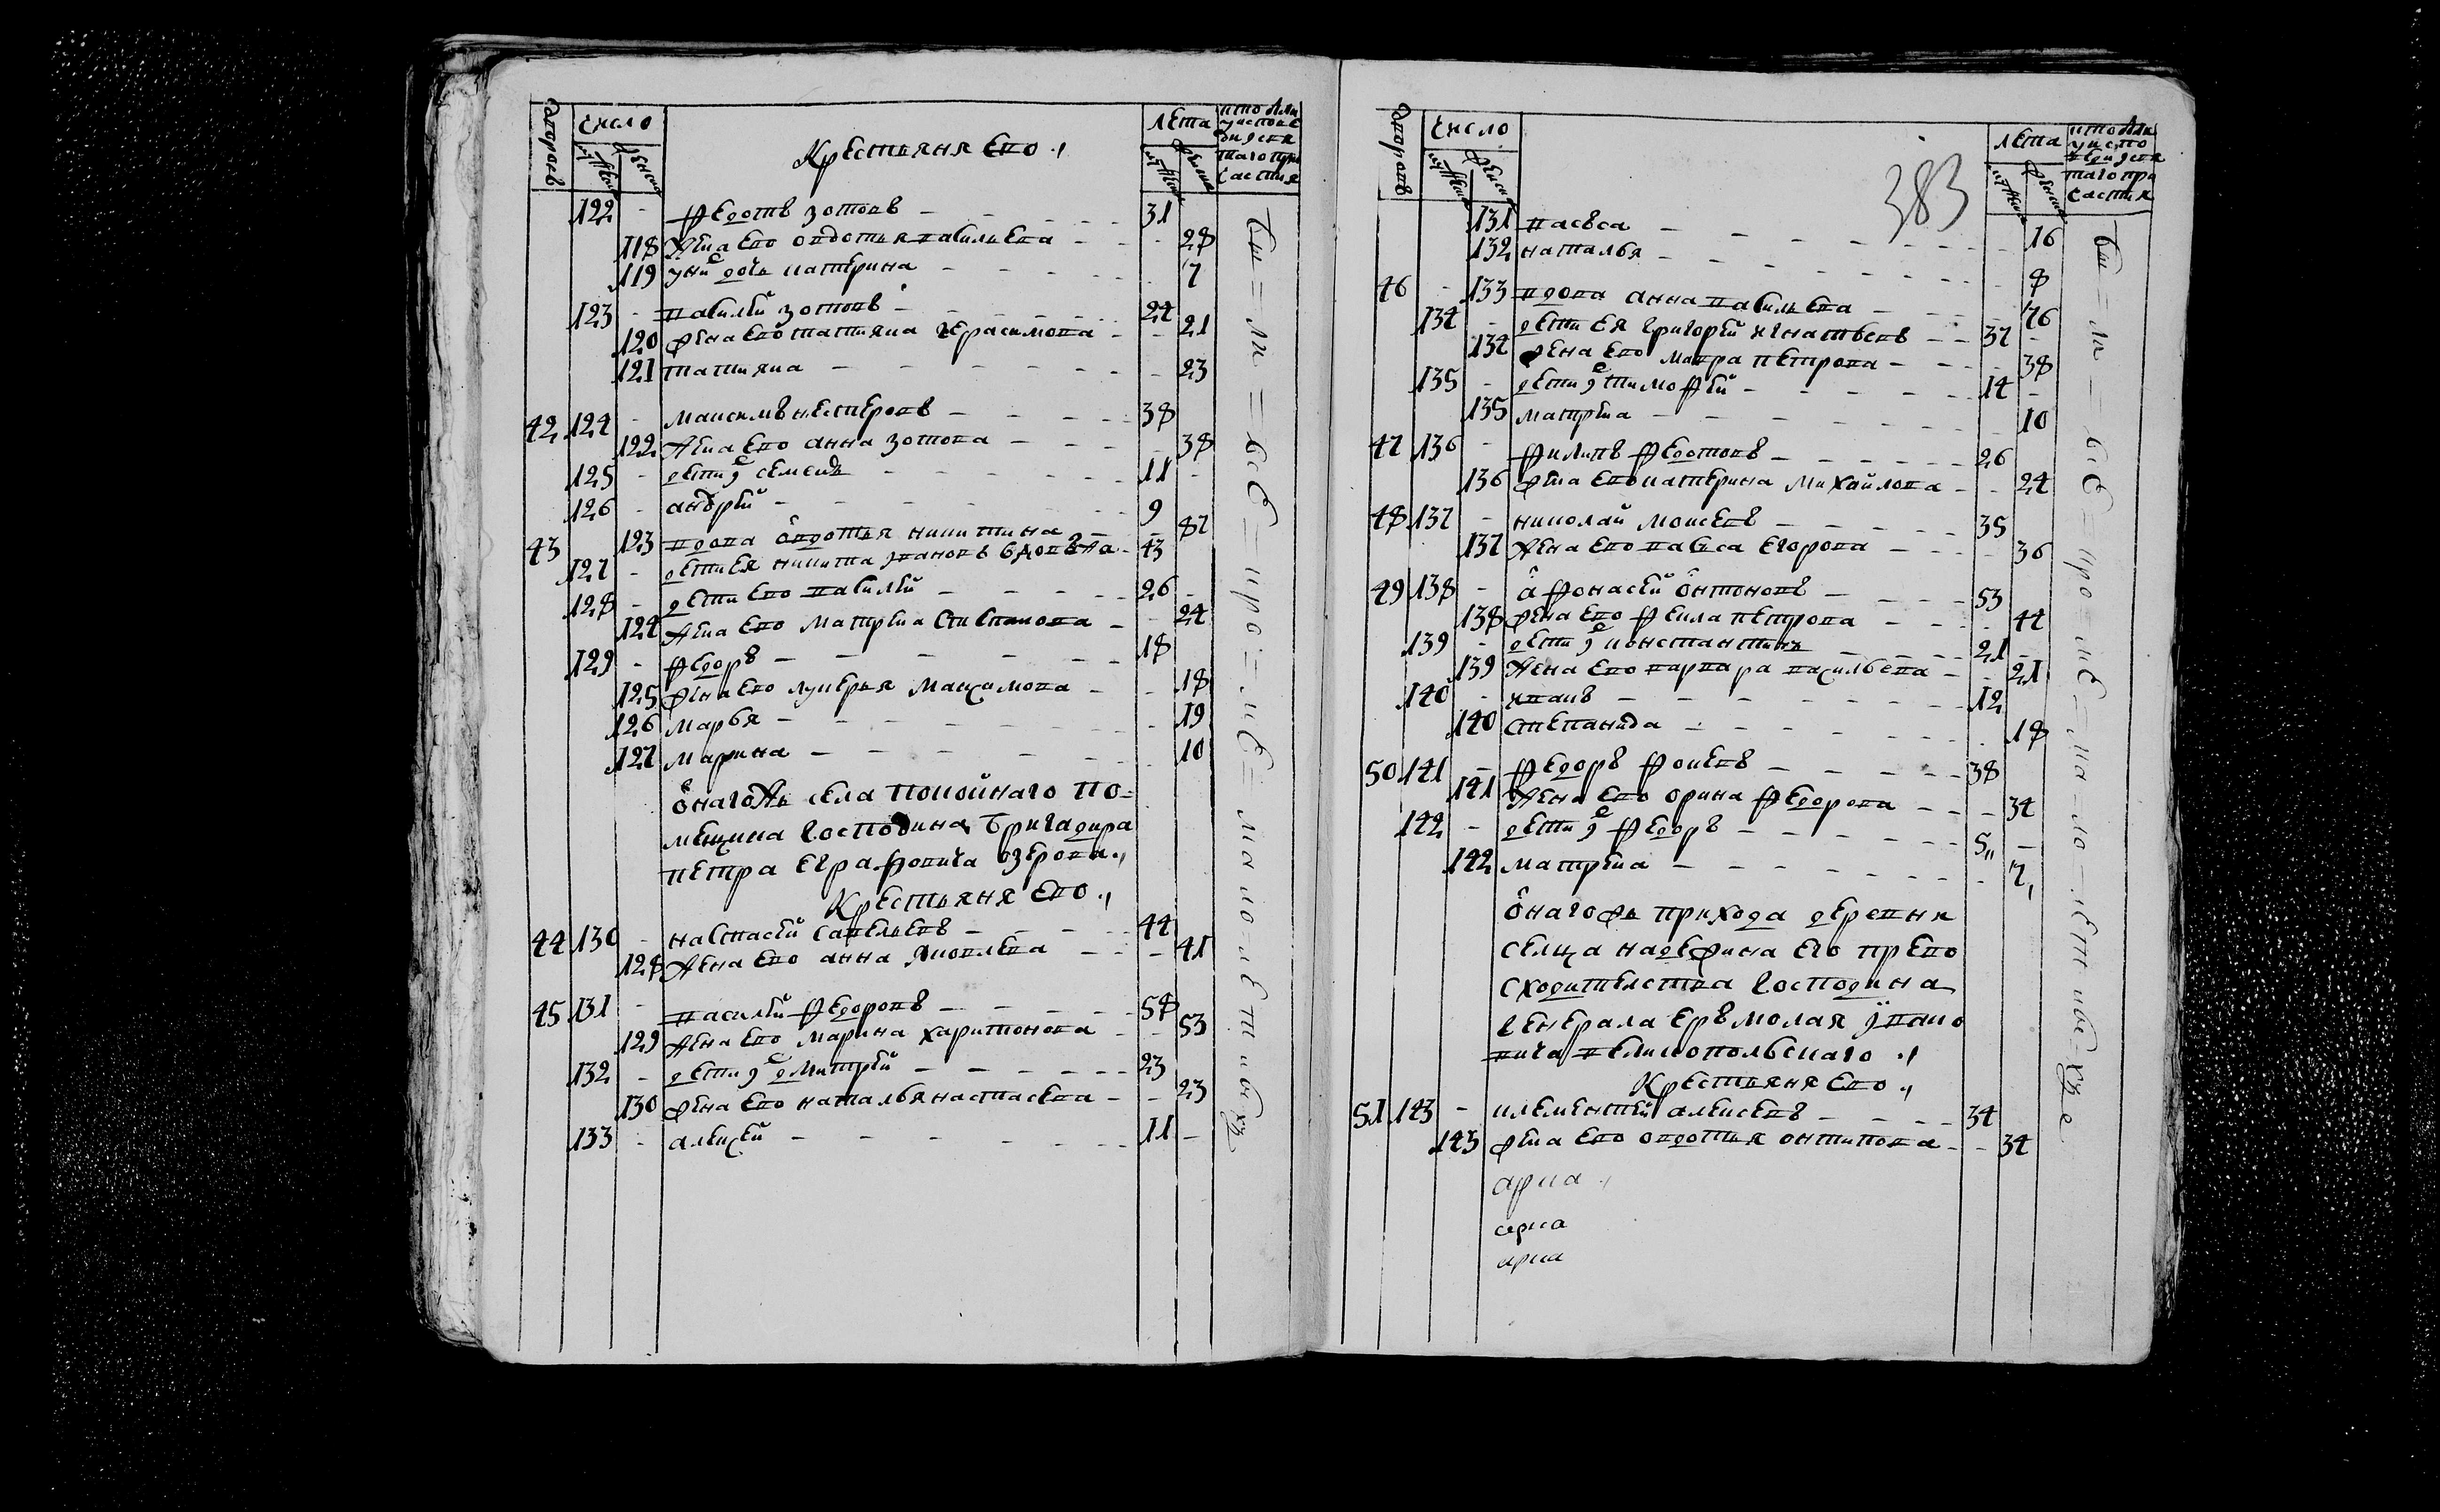 дворовъ число Крестьяня ево лета
122 - Федотъ зотовъ - 31
118 Жена ево овдотья Васильева - 28
119 у ни дочь катерина - 7
123 - Василей зотовъ - 24
120 жена ево татияна Герасимова - 21
121 татияна - 23
42 124 - Максимъ нестеровъ - 38
122 Жена ево анна зотова - 38
125 - дети их семенъ - 11 -
126 - андрей - 9
43 123 вдова овдотья никитина - 87
127 - дети ея никита ивановъ вдовъ - 43
128 - дети ево василей - 26 -
124 Жена ево матрена Степанова - 24
129 - Федоръ - 18
125 жена ево лукерья Максимова - 18
126 марья - 19
127 марина - 10
онагожь села покойнаго по=
мещика Господина Бригадира
петра Евграфовича озерова.,
Крестьяня ево.,
44 130 - настасей савельевъ - 44
128 Жена ево анна Яковлева - 41
45 131 - василей Федоровъ - 58
129 Жена ево Марина харитонова - 53
132 - дети их дмитрей - 23
130 жена ево наталья настасева - 23
133 - алексей - 11 -
дворовъ число лета
383
131 васса - 16
132 наталья - 8
46 - 133 вдова анна васильева - 76
134 - дети ея григорей игнатьевъ - 37 -
134 жена ево мавра петрова - 38
135 - дети их тимофей - 14 -
135 матрена - 10
47 136 - филипъ федотовъ - 26
136 жена ево катерина михайлова - 24
48 137 - николай моисевъ - 35
137 Жена ево васса егорова - 36
49 138 - афонасей онтоновъ - 53
138 жена ево фекла петрова - 44
139 - дети их константинъ - 21
139 Жена ево варвара васильева - 21
140 - иванъ - 12
140 степанида - 18
50 141 - Федоръ фокевъ - 38
141 Жена ево орина федорова - 34
142 - дети их федоръ - 5 -
142 матрена - 7
онагожь прихода деревни
селца надежина его прево
сходителства Господина
генерала ермолая ивано
вича великопольскаго .,
Крестьяня ево.,
51 143 - клементей алексевъ - 34
143 жена ево овдотья онтипова - 34